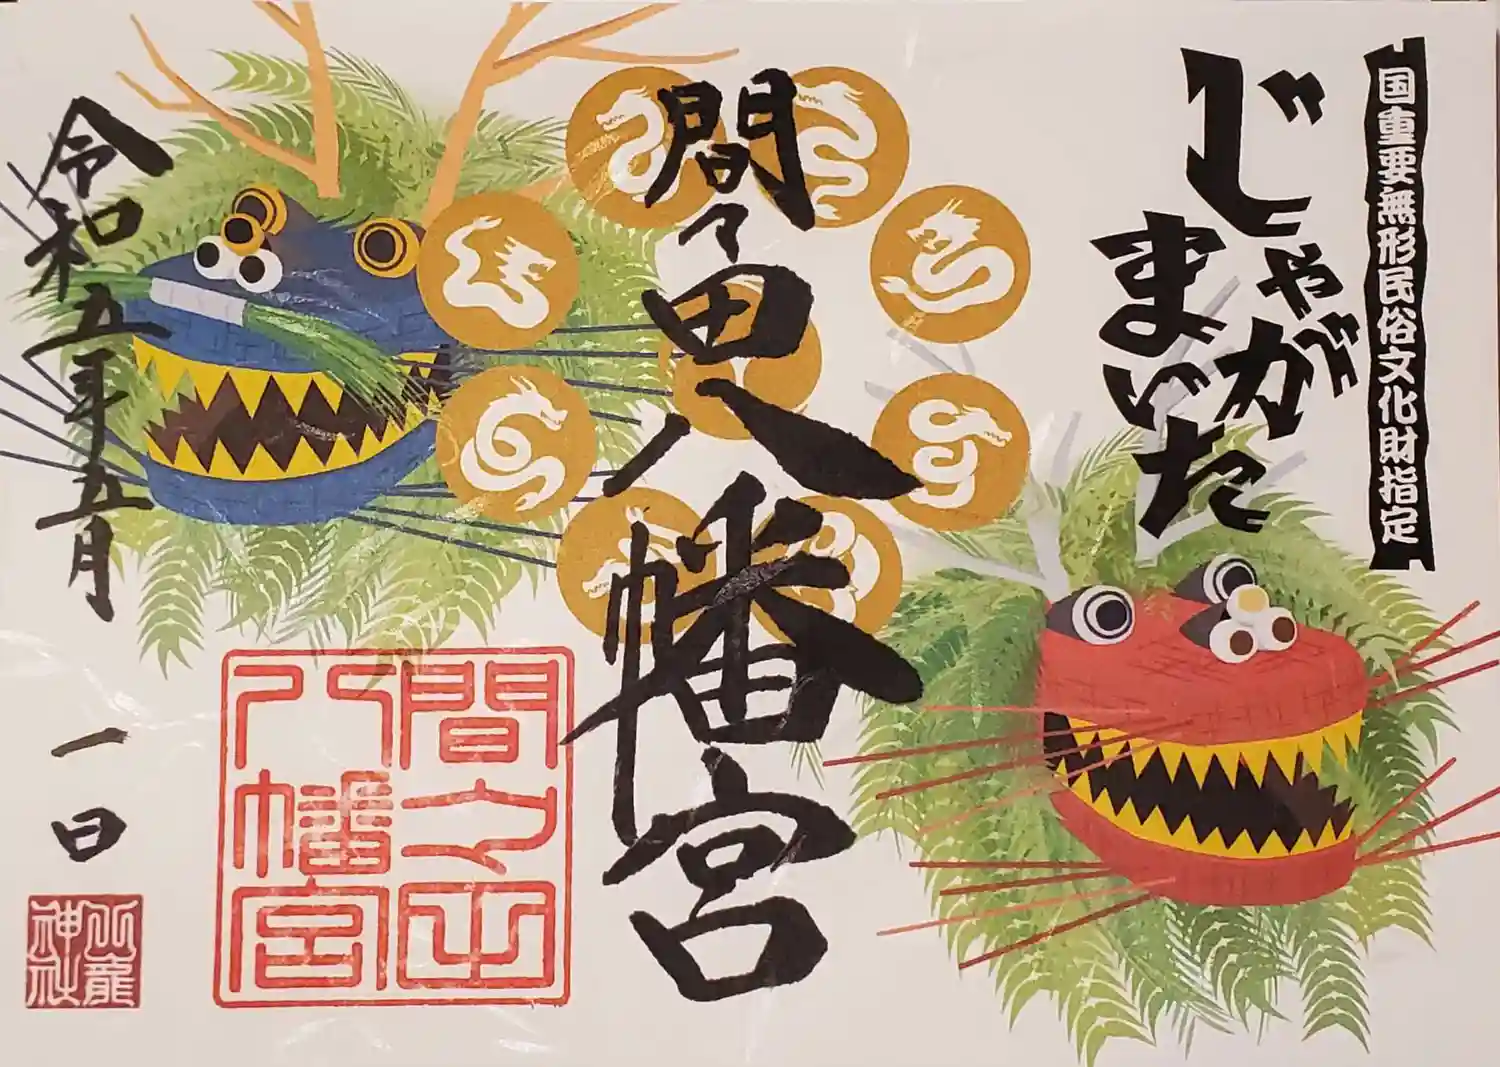 国重要無形民俗文化財指定
じゃがまいた
間々田八幡宮
令和五年五月一日
間々田
八幡宮
神社